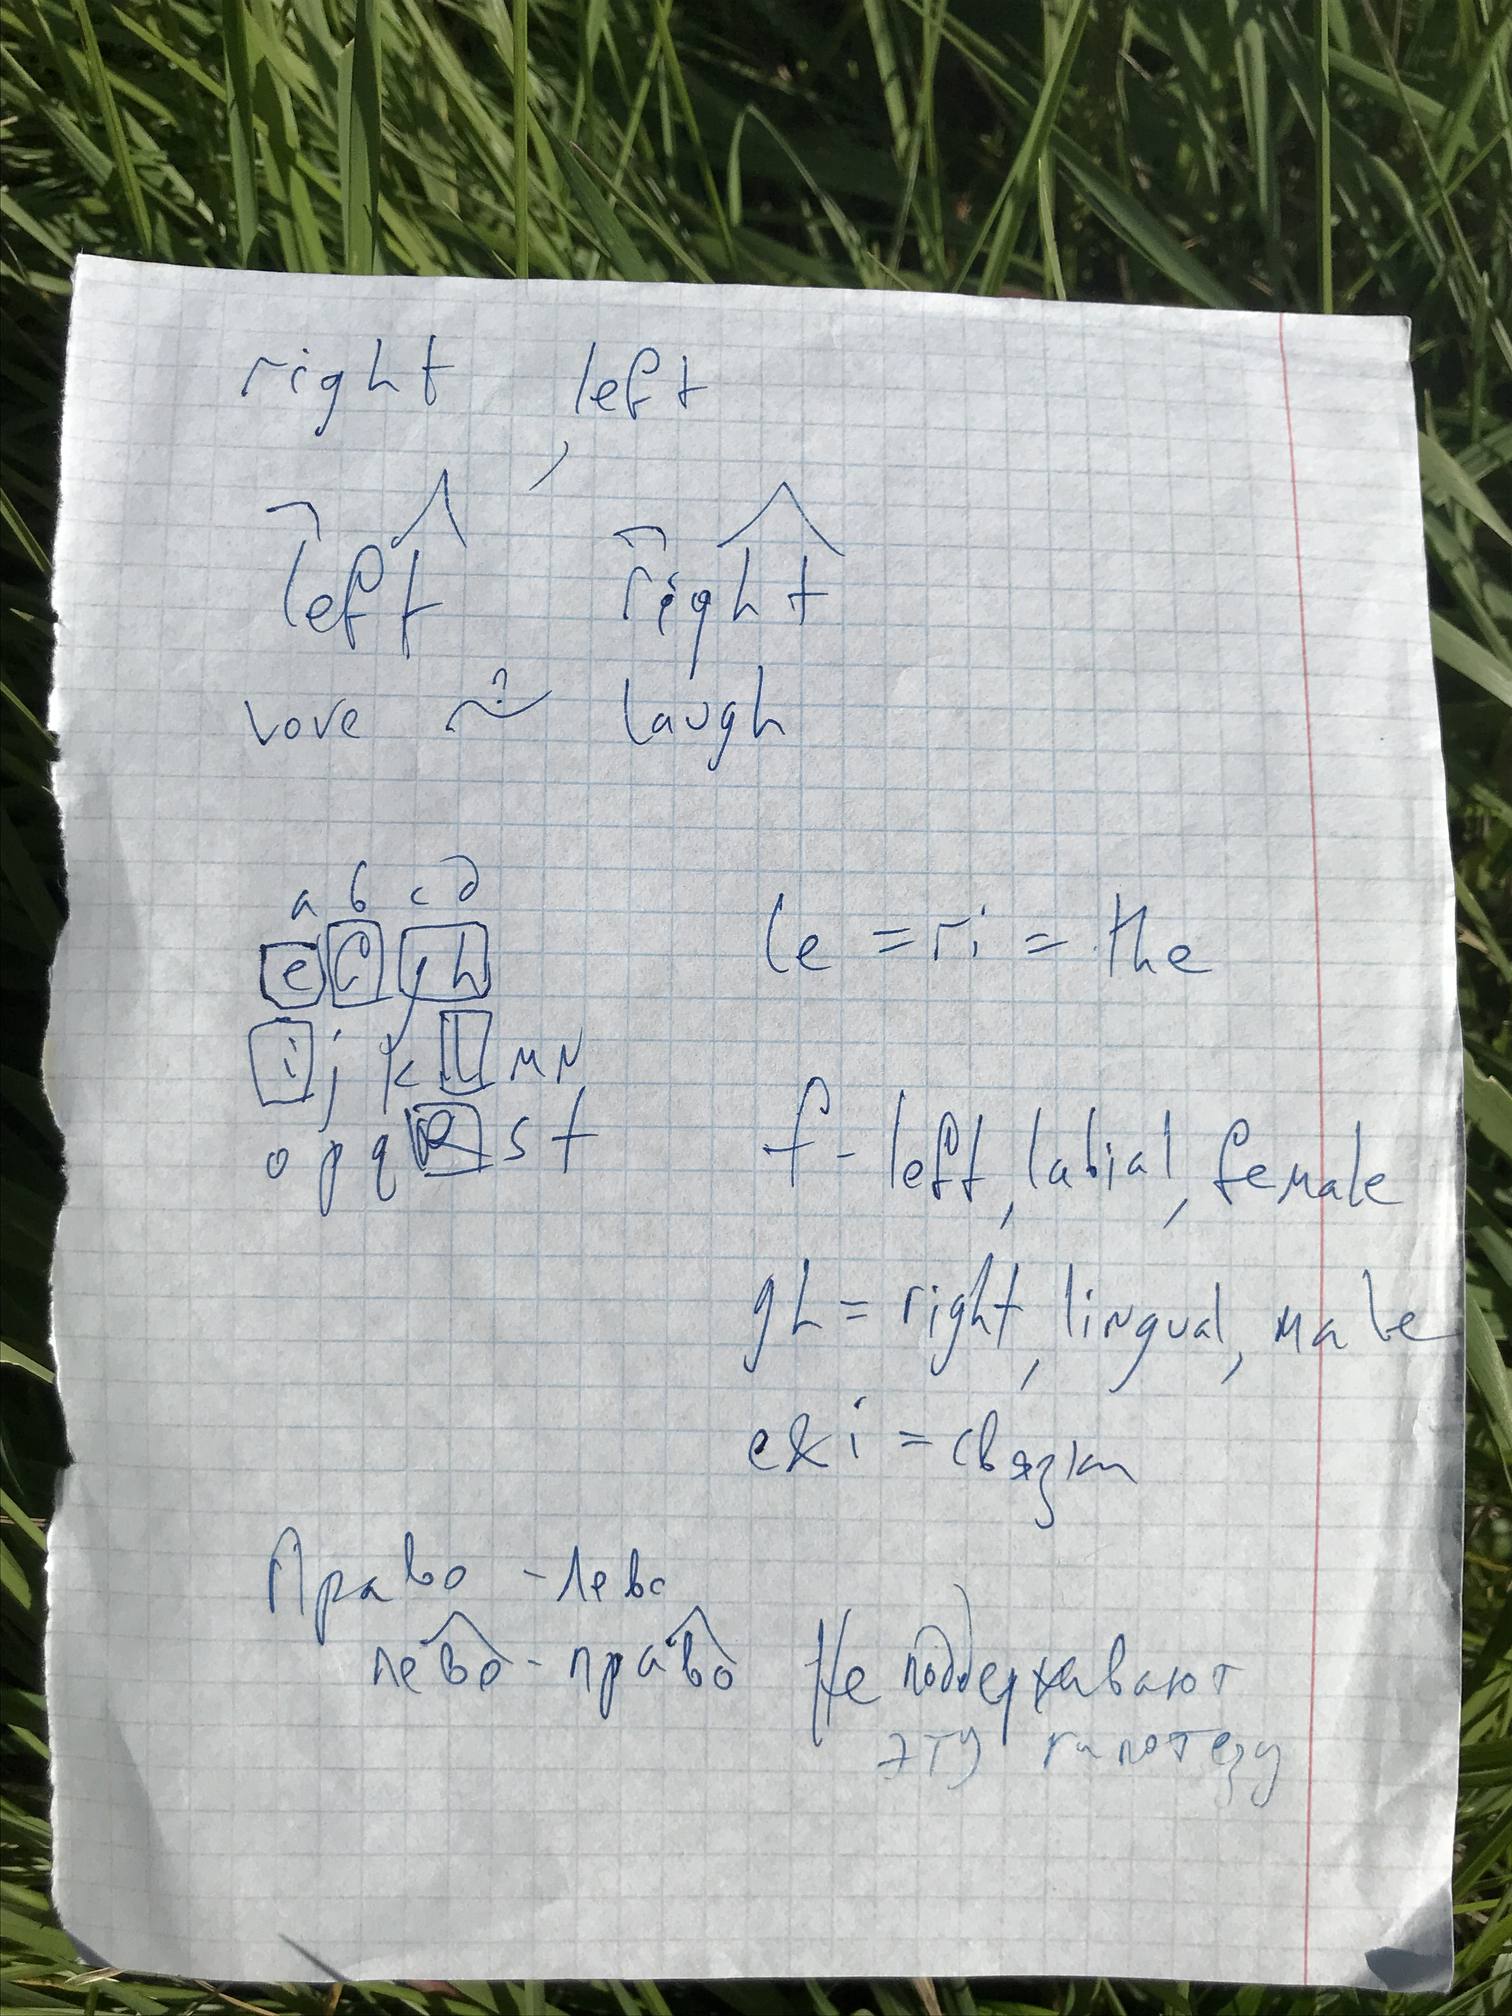 right , left
left right
love ~? laugh
a b c d
e f gh
i j k l m n
o p q r s t
le = ri = the
f - left, labial, female
gh = right, lingual, male
e&i = связки
Право - лево
лево - право Не поддерживают
эту гипотезу